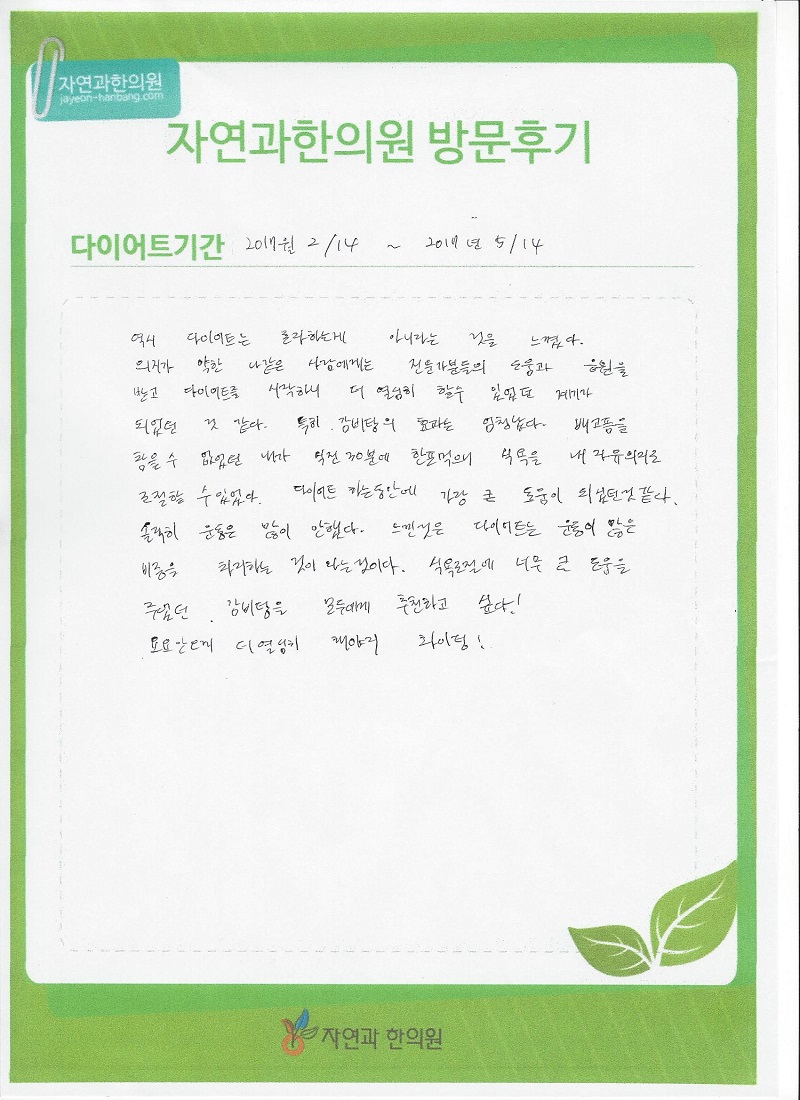 자연과한의원
jayeon-hanbang.com
자연과한의원 방문후기
다이어트기간 2017월 2/14 ~ 2017년 5/14
역시 다이어트는 혼자하는게 아니라는 것을 느꼈다.
의지가 약한 나같은 사람에게는 전문가분들의 도움과 응원을
받고 다이어트를 시작하니 더 열심히 할수 있었던 계기가
되었던 것 같다. 특히 감비탕의 효과는 엄청났다. 배고픔을
참을 수 없었던 내가 식전 30분에 한포먹으니 식욕을 내 자유의지로
조절할 수 있었다. 다이어트 하는동안에 가장 큰 도움이 되었던것 같다.
솔직히 운동은 많이 안했다. 느낀것은 다이어트는 운동이 많은
비중을 차지하는 것이 아는것이다. 식욕조절에 너무 큰 도움을
주었던 감비탕을 모두에게 추천하고 싶다!
요요안오게 더 열심히 해야지 화이팅!
자연과 한의원